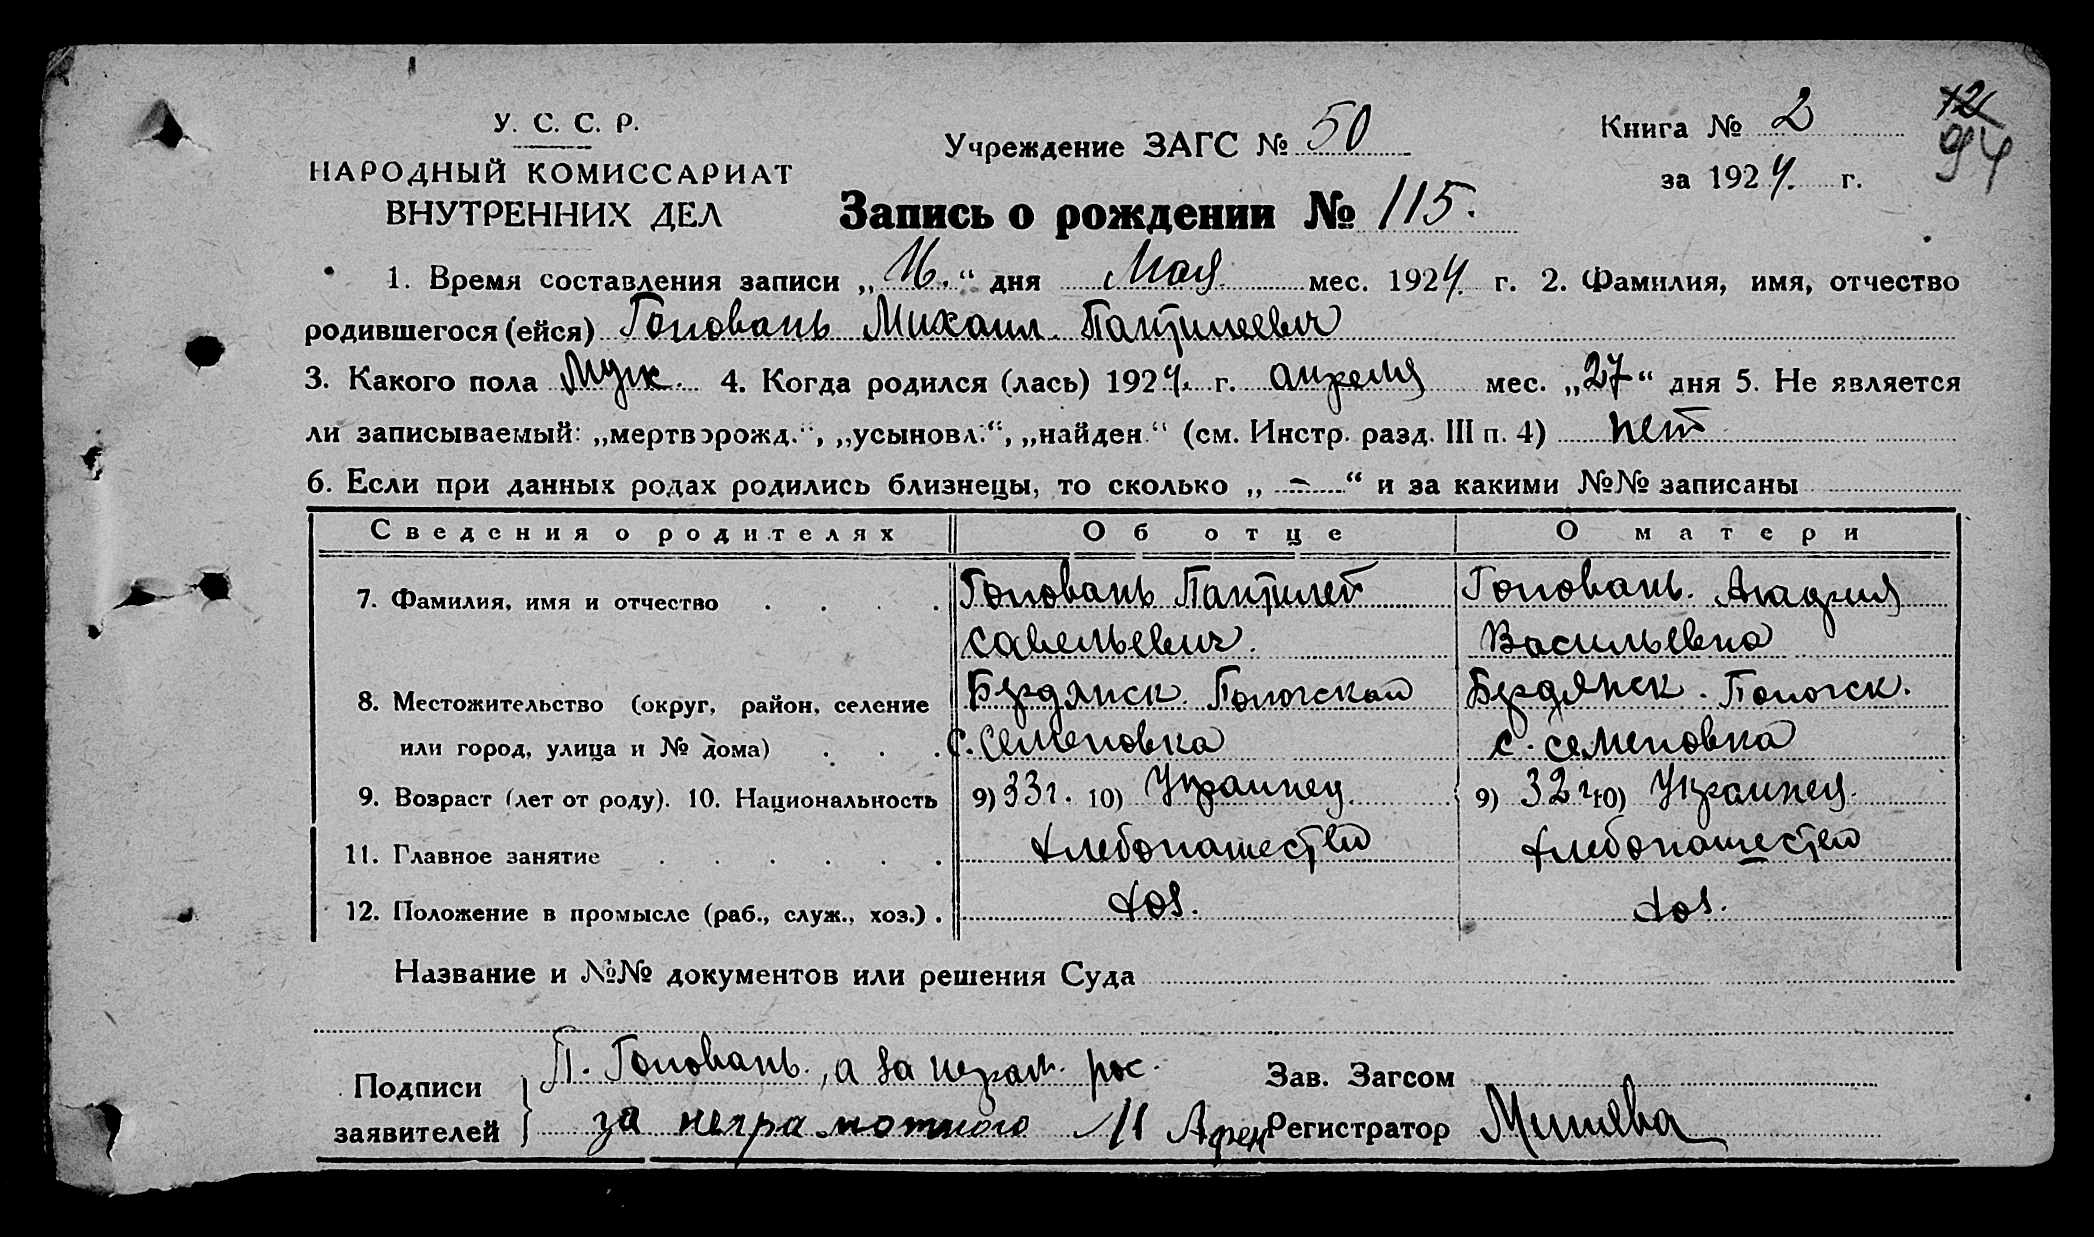 У. С. С. Р.
НАРОДНЫЙ КОМИССАРИАТ
ВНУТРЕННИХ ДЕЛ
Учреждение ЗАГС № 50
Книга № 2
за 1924 г.
12
94
Запись о рождении № 115.
1. Время составления записи „16.“ дня Мая мес. 1924 г. 2. Фамилия, имя, отчество
родившегося (ейся) Головань Михаил Пантилеевич
3. Какого пола Муж. 4. Когда родился (лась) 1924 г. апреля мес. „27“ дня 5. Не является
ли записываемый: „мертворожд.“, „усыновл.“, „найден“ (см. Инстр. разд. III п. 4) нет
6. Если при данных родах родились близнецы, то сколько „ — “ и за какими №№ записаны
Сведения о родителях Об отце О матери
7. Фамилия, имя и отчество Головань Пантилей Головань
Савельевич. Васильевна
8. Местожительство (округ, район, селение Бердянск. Пологской Бердянск. Пологск.
или город, улица и № дома) с. Семеновка с. Семеновка
9. Возраст (лет от роду). 10. Национальность 9) 33 г. 10) Украинец 9) 32 г. 10) Украинец
11. Главное занятие хлебопашество хлебопашество
12. Положение в промысле (раб., служ., хоз.) хоз. хоз.
Название и №№ документов или решения Суда
Подписи
заявителей
П. Головань, а за неграм. рос.
за неграмотного И
Зав. Загсом
Регистратор